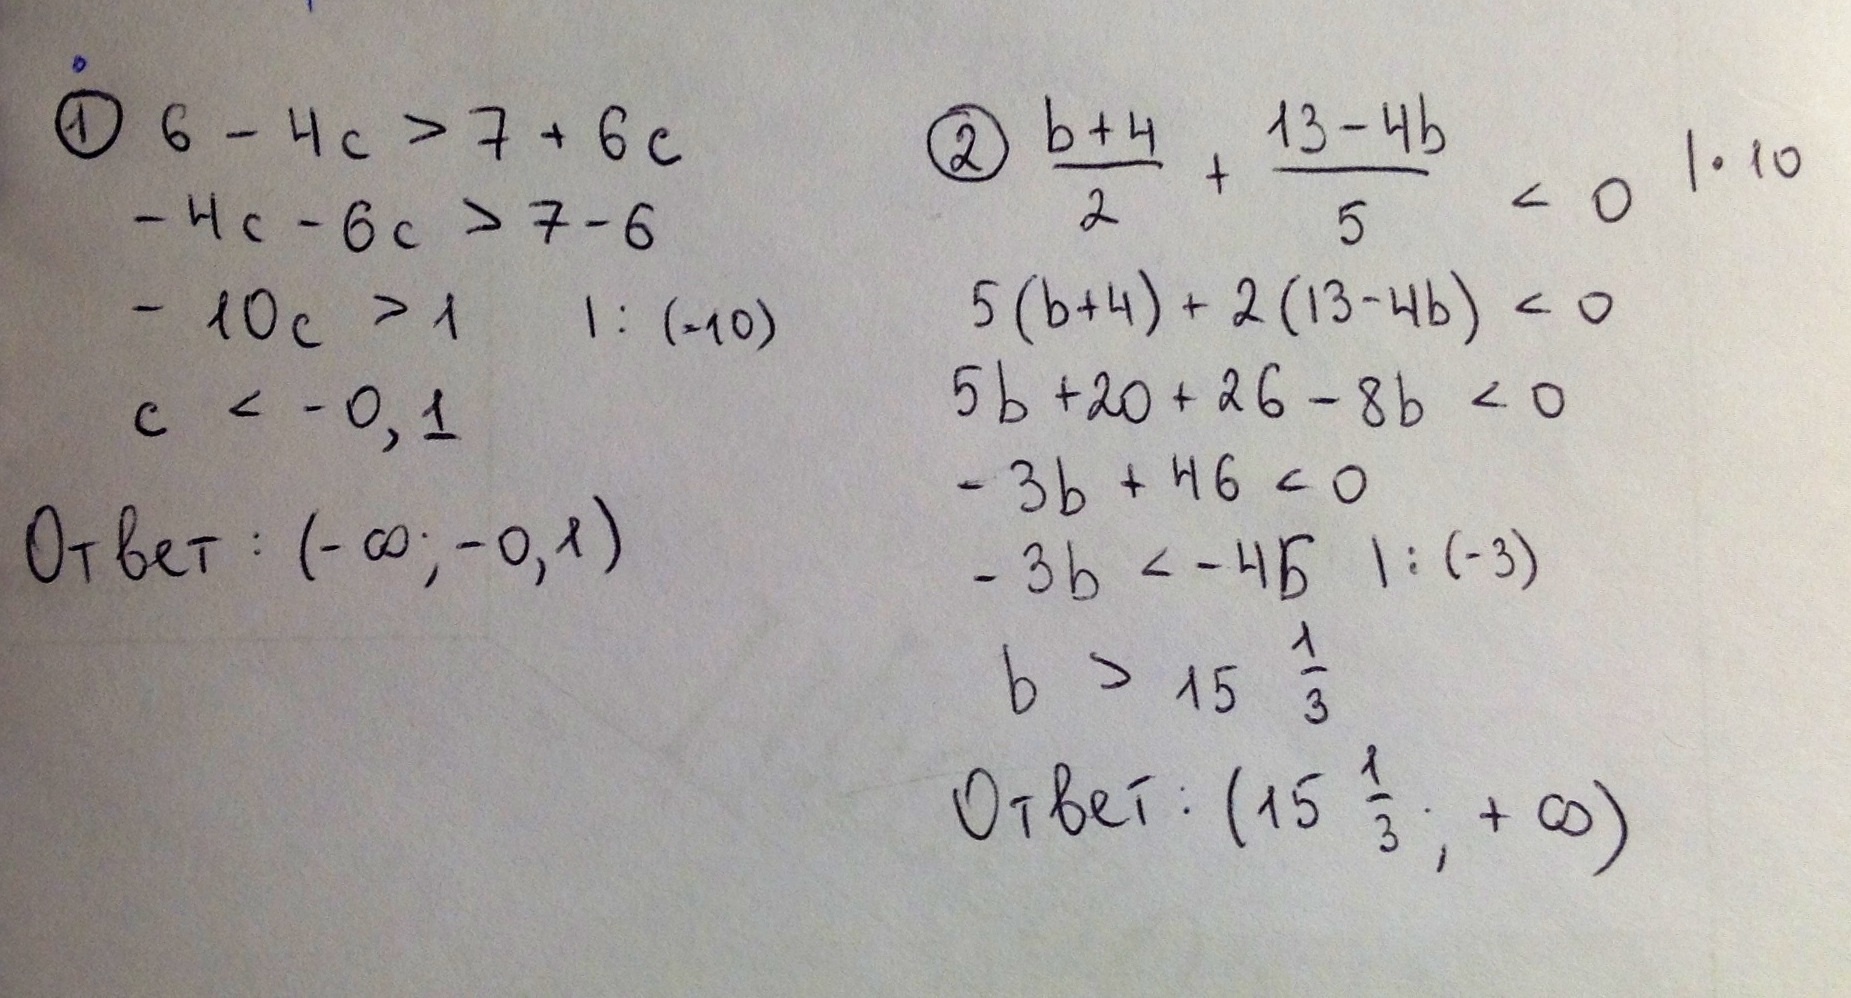 ① 6 - 4c > 7 + 6c
-4c - 6c > 7 - 6
- 10c > 1 |: (-10)
c < -0,1
Ответ: (-∞; -0,1)
② (b+4)/2 + (13-4b)/5 < 0 |· 10
5(b+4) + 2(13-4b) < 0
5b + 20 + 26 - 8b < 0
- 3b + 46 < 0
- 3b < - 46 |: (-3)
b > 15 1/3
Ответ: (15 1/3; + ∞)